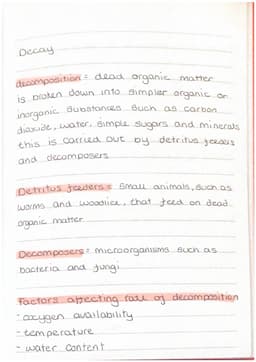 Decay
decomposition = dead organic matter
is broken down into simpler organic or
inorganic substances such as carbon
dioxide, water, simple sugars and minerals
this is carried out by detritus feeders
and decomposers
Detritus feeders = small animals, such as
worms and woodlice, that feed on dead
organic matter
Decomposers = microorganisms such as
bacteria and fungi
Factors affecting rate of decomposition
- oxygen availability
- temperature
- water content